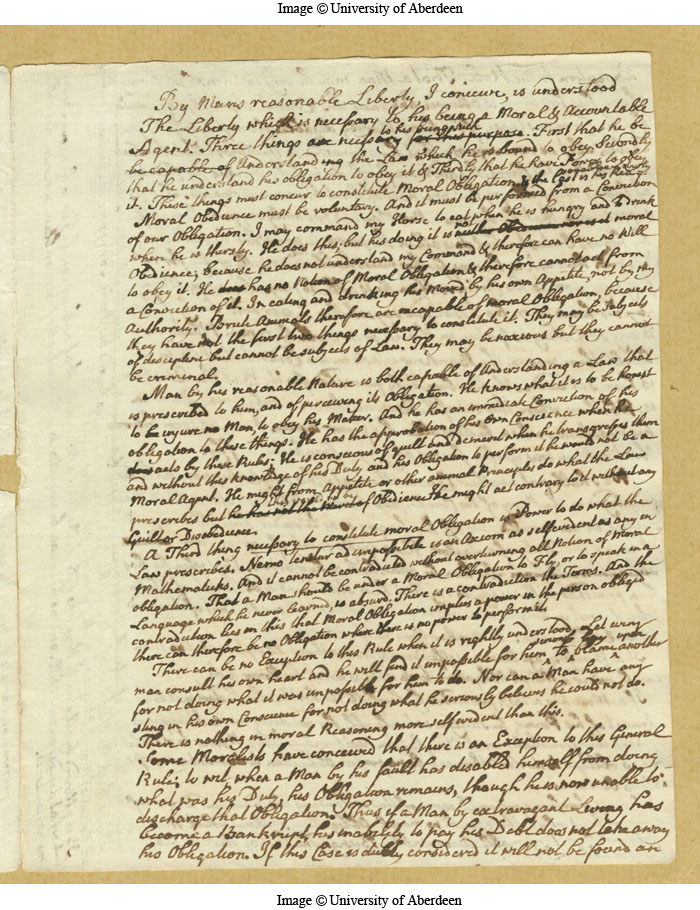 Image © University of Aberdeen
By Mans reasonable Liberty, I conceive, is understood
The Liberty which is necessary to his being a Moral & Accountable
Agent. Three things are necessary for this purpose. First that he be
to his being such
be capable of Understanding the Law which he is bound to obey, Secondly
that he understand his obligation to obey it & Thirdly that he have Power to obey
it. These things must concur to constitute Moral Obligation
Moral Obedience must be voluntary. And it must be performed from a Conviction
of our Obligation. I may command my Horse to eat when he is hungry and to drink
when he is thirsty. He does this; but his doing it is not moral
Obedience; because he does not understand my Command & therefore can have no Will
to obey it. He has no Notion of Moral Obligation & therefore cannot act from
a Conviction of it. In eating and drinking he is Moved by his own Appetite, not by my
Authority. Brute Animals therefore are incapable of moral Obligation, because
they have not the first two things necessary to constitute it. They may be subjects
of discipline but cannot be subjects of Law. They may be noxious but they cannot
be criminal.
Man by his reasonable Nature is both capable of Understanding a Law that
is prescribed to him, and of perceiving its Obligation. He knows what it is to be honest
to injure no Man, to obey his Maker. And he has an immediate Conviction of his
obligation to these things. He has the approbation of his own Conscience when he
acts by these Rules; He is conscious of guilt and demerit when he transgresses them
and without this knowledge of his Duty and his Obligation to perform it he would not be a
Moral Agent. He might from Appetite or other animal Principles do what the Law
prescribes but he has not the Merit of Obedience. He might act contrary to it without any
Guilt or Disobedience.
A Third thing necessary to constitute moral Obligation is Power to do what the
Law prescribes. Nemo tenetur ad impossibile is an Axiom as selfevident as any in
Mathematicks. And it cannot be contradicted without overturning all Notion of Moral
obligation. That a Man should be under a Moral Obligation to Fly, or to speak in a
Language which he never learned, is absurd. There is a contradiction in the Terms. And the
contradiction lies in this that Moral Obligation implies a power in the person obliged
there can therefore be no Obligation where there is no power to perform it.
There can be no Exception to this Rule when it is rightly understood, Let every
man consult his own heart and he will find it impossible for him seriously to blame another
for not doing what it was impossible for him to do. Nor can a Man have any
sting in his own Conscience for not doing what he seriously believes he could not do.
There is nothing in moral Reasoning more selfevident than this.
Some Moralists have conceived that there is an Exception to this General
Rule; to wit, when a Man by his fault has disabled himself from doing
what was his Duty, his Obligation remains, though he is now unable to
discharge that Obligation. Thus if a Man by extravagant Living has
become a Bankrupt, his inability to pay his Debt does not take away
his Obligation. If this Case is duly considered it will not be found an
Image © University of Aberdeen